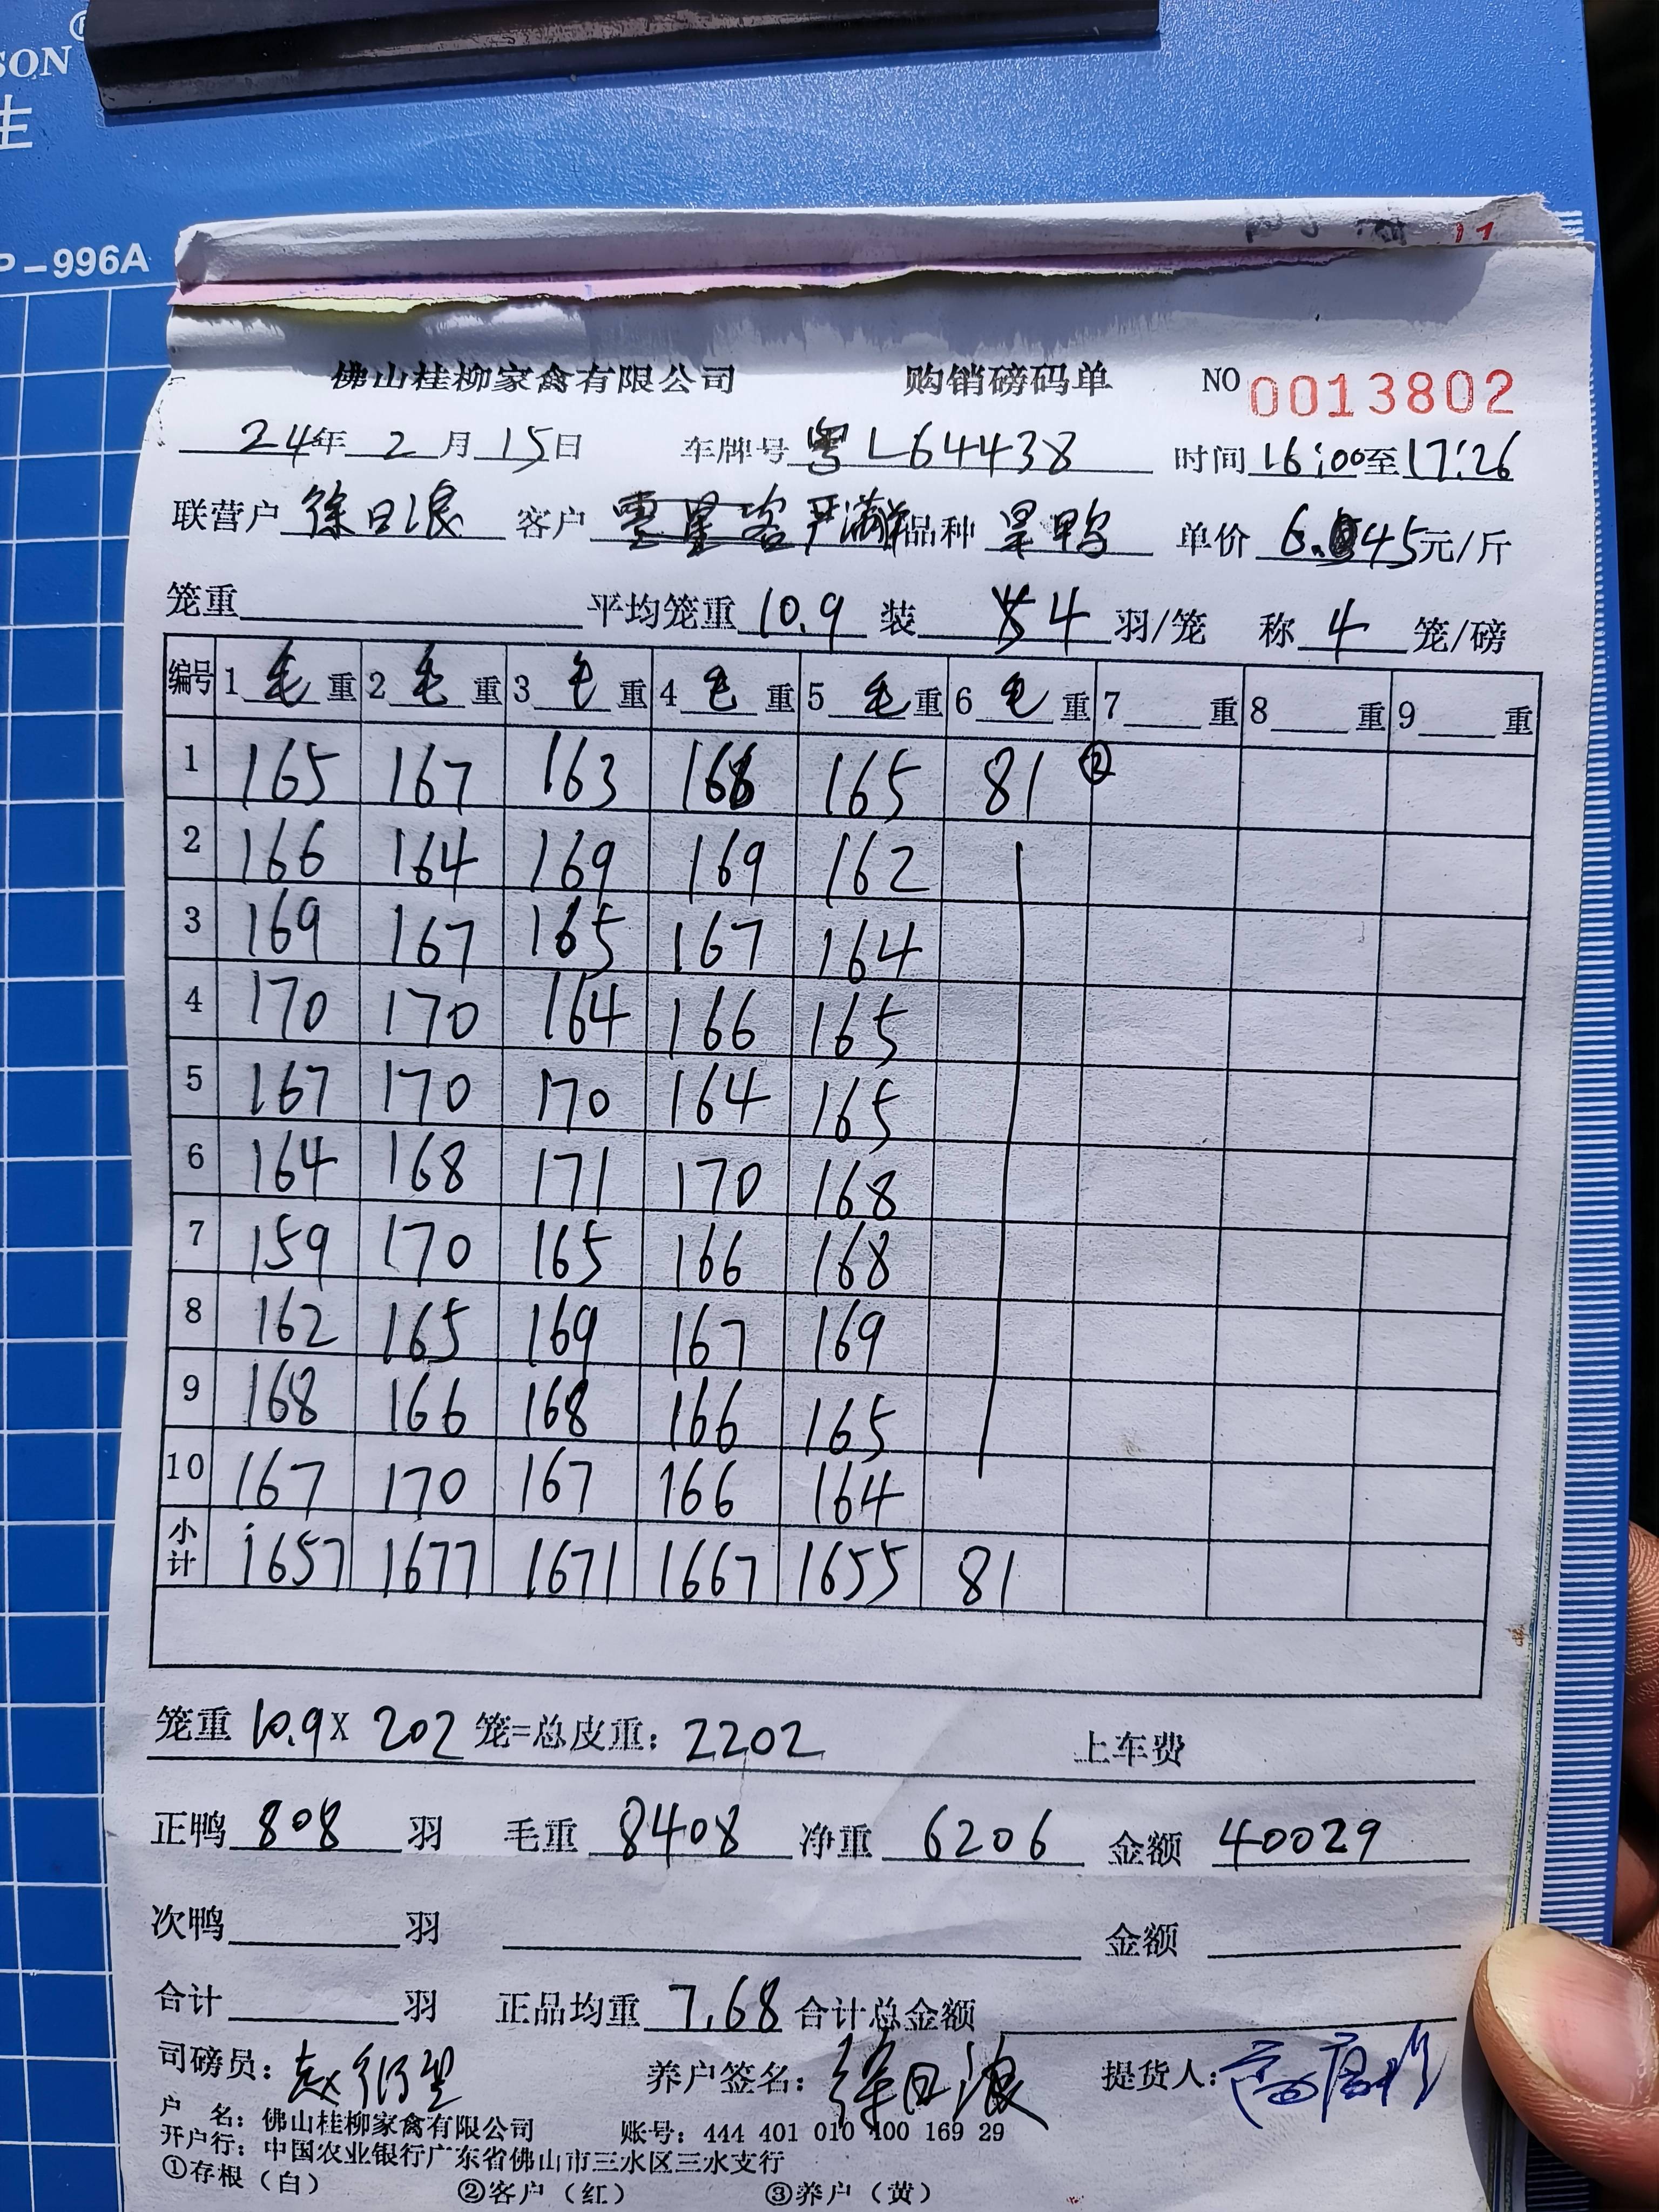 SON ®
生
P-996A
佛山桂柳家禽有限公司 购销磅码单 NO 0013802
24年 2 月 15日 车牌号 粤L64438 时间 16:00至17:26
联营户 徐日浪 客户 品种 单价 6.45元/斤
笼重 平均笼重 10.9 装 4 羽/笼 称 4 笼/磅
编号 1 毛 重 2 毛 重 3 毛 重 4 毛 重 5 毛 重 6 毛 重 7 重 8 重 9 重
1 165 167 163 168 165 81 ②
2 166 164 169 169 162
3 169 167 165 167 164
4 170 170 164 166 165
5 167 170 170 164 165
6 164 168 171 170 168
7 159 170 165 166 168
8 162 165 169 167 169
9 168 166 168 166 165
10 167 170 167 166 164
小计 1657 1677 1671 1667 1655 81
笼重 10.9 X 202 笼=总皮重: 2202 上车费
正鸭 808 羽 毛重 8408 净重 6206 金额 40029
次鸭 羽 金额
合计 羽 正品均重 7.68 合计总金额
司磅员: 养户签名: 徐日浪 提货人:
户 名: 佛山桂柳家禽有限公司 账号: 444 401 010 400 169 29
开户行: 中国农业银行广东省佛山市三水区三水支行
①存根（白） ②客户（红） ③养户（黄）